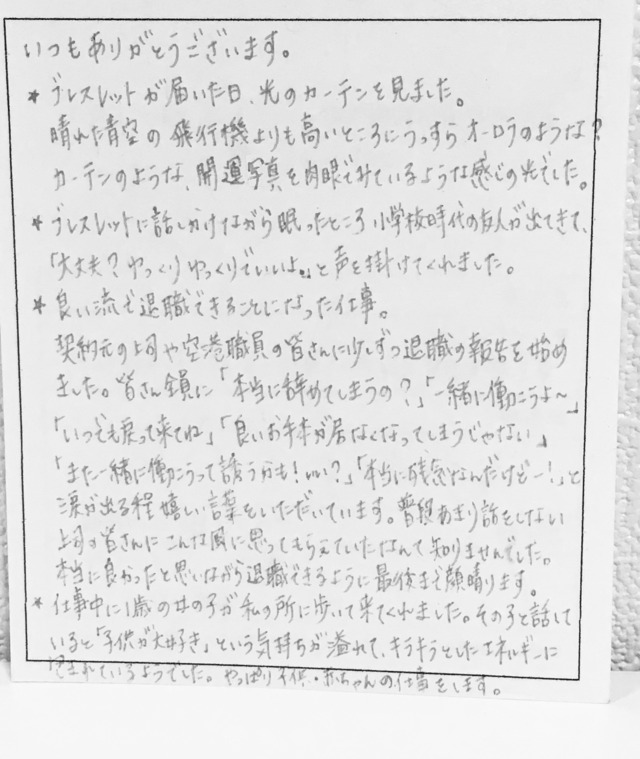 いつもありがとうございます。
* ブレスレットが届いた日、光のカーテンを見ました。
晴れた青空の飛行機よりも高いところにうっすらオーロラのような?
カーテンのような、開運写真を肉眼でみているような感じの光でした。
* ブレスレットに話しかけながら眠ったところ小学校時代の友人が出てきて、
「大丈夫?ゆっくりゆっくりでいいよ。」と声を掛けてくれました。
* 良い流れで退職できることになった仕事。
契約元の上司や空港職員の皆さんに少しずつ退職の報告を始め
ました。皆さん全員に「本当に辞めてしまうの?」「一緒に働こうよ〜」
「いつでも戻って来てね」「良いお手本が居なくなってしまうじゃない」
「また一緒に働こうって誘うかも!いい?」「本当に残念なんだけどー!」と
涙が出る程嬉しい言葉をいただいています。普段あまり話をしない
上司の皆さんにこんな風に思ってもらえていたなんて知りませんでした。
本当に良かったと思いながら退職できるように最後まで顔晴ります。
* 仕事中に1歳の女の子が私の所に歩いて来てくれました。その子と話して
いると「子供が大好き」という気持ちが溢れて、キラキラとしたエネルギーに
包まれているようでした。やっぱり子供・赤ちゃんの仕事をします。